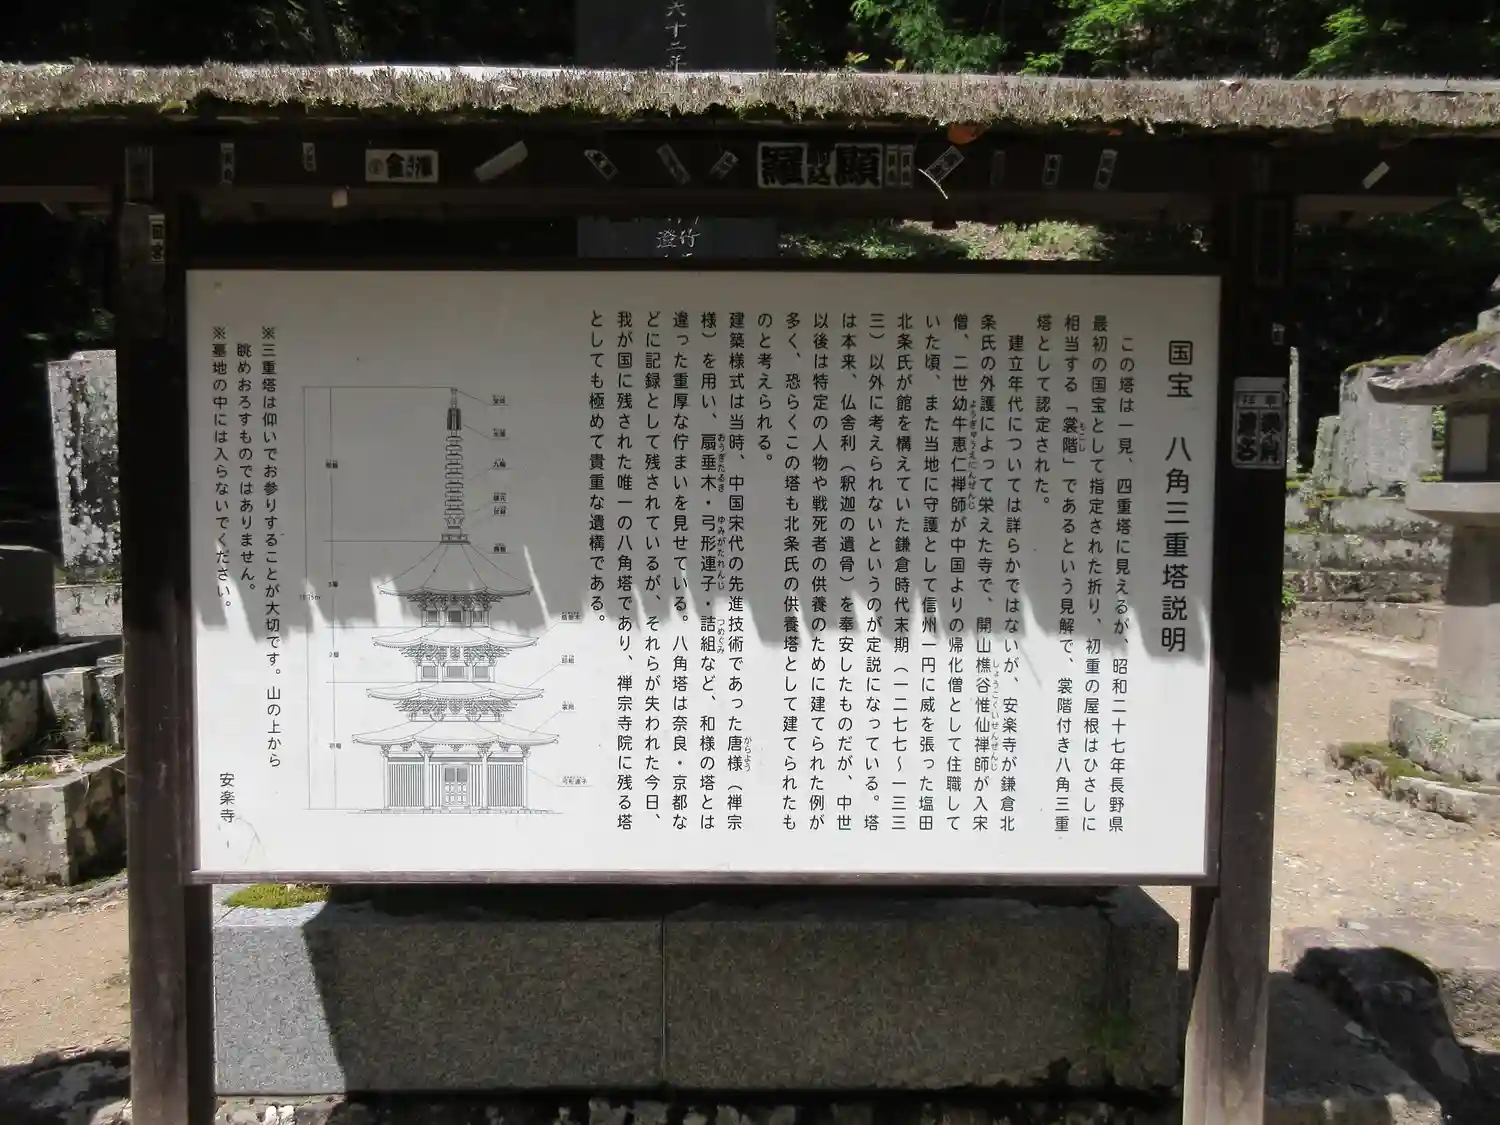 国宝　八角三重塔説明
この塔は一見、四重塔に見えるが、昭和二十七年長野県
最初の国宝として指定された折り、初重の屋根はひさしに
相当する「裳階」であるという見解で、裳階付き八角三重
もこし
塔として認定された。
建立年代については詳らかではないが、安楽寺が鎌倉北
条氏の外護によって栄えた寺で、開山樵谷惟仙禅師が入宋
しょうこくいせんぜんじ
僧、二世幼牛恵仁禅師が中国よりの帰化僧として住職して
ようぎゅうえにんぜんじ
いた頃、また当地に守護として信州一円に威を張った塩田
北条氏が館を構えていた鎌倉時代末期（一二七七～一三三
三）以外に考えられないというのが定説になっている。塔
は本来、仏舎利（釈迦の遺骨）を奉安したものだが、中世
以後は特定の人物や戦死者の供養のために建てられた例が
多く、恐らくこの塔も北条氏の供養塔として建てられたも
のと考えられる。
建築様式は当時、中国宋代の先進技術であった唐様（禅宗
からよう
様）を用い、扇垂木・弓形連子・詰組など、和様の塔とは
おうぎたるき　ゆみがたれんじ　つめぐみ
違った重厚な佇まいを見せている。八角塔は奈良・京都な
どに記録として残されているが、それらが失われた今日、
我が国に残された唯一の八角塔であり、禅宗寺院に残る塔
としても極めて貴重な遺構である。
九輪
相輪
3層
2層
初層
裳階
弓形連子
※三重塔は仰いでお参りすることが大切です。山の上から
眺めおろすものではありません。
※墓地の中には入らないでください。
安楽寺
六十二年
竹
澄
羅
顕